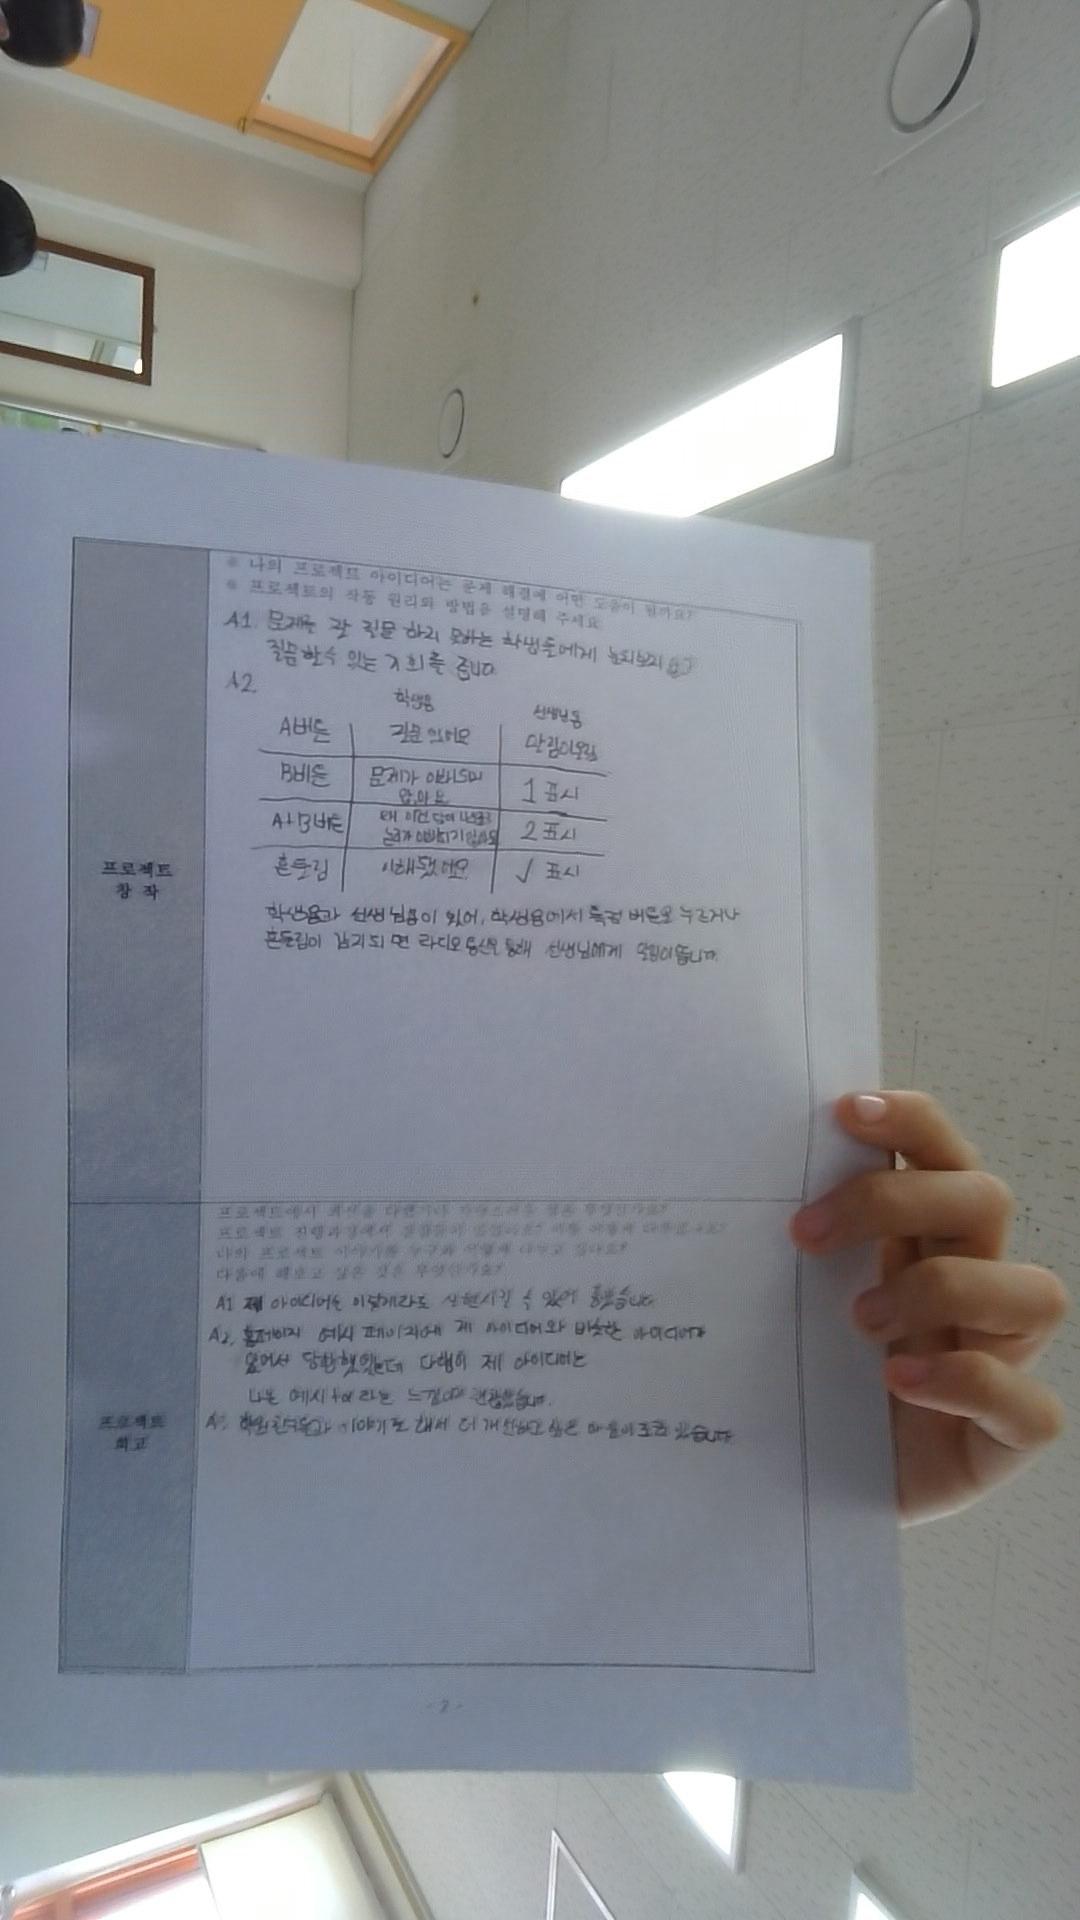 ※ 나의 프로젝트 아이디어는 문제 해결에 어떤 도움이 될까요?
※ 프로젝트의 작동 원리와 방법을 설명해 주세요
A1. 문제를 잘 질문 하지 못하는 학생들에게 눈치보지
질문할수 있는 기회를 줍니다.
A2.
학생용 선생님용
A버튼 질문 있어요 알림이울림
B버튼 문제가 이해되지 않아요 1 표시
A+B버튼 왜 이런 답이 2 표시
흔들림 이해했어요 √ 표시
프로젝트
창 작
학생용과 선생님용이 있어, 학생용에서 특정 버튼을 누르거나
흔들림이 감지되면 라디오 통신을 통해 선생님에게 알림이 뜹니다.
프로젝트에서 무엇인가요?
프로젝트 진행과정에서
나의 프로젝트 이야기를 누구와 어떻게 나누고 싶나요?
다음에 해보고 싶은 것은 무엇인가요?
A1 제 아이디어를 이렇게라도 실현시킬 수 있어 좋았습니다.
A2. 홈페이지 예시 페이지에 제 아이디어와 비슷한 아이디어가
있어서 당황했었는데 다행히 제 아이디어는
나온 예시+α 라는 느낌이라 괜찮았습니다.
이야기도 해서 더 개선하고 싶은 마음이 있습니다.
프로젝트
회고
- 2 -